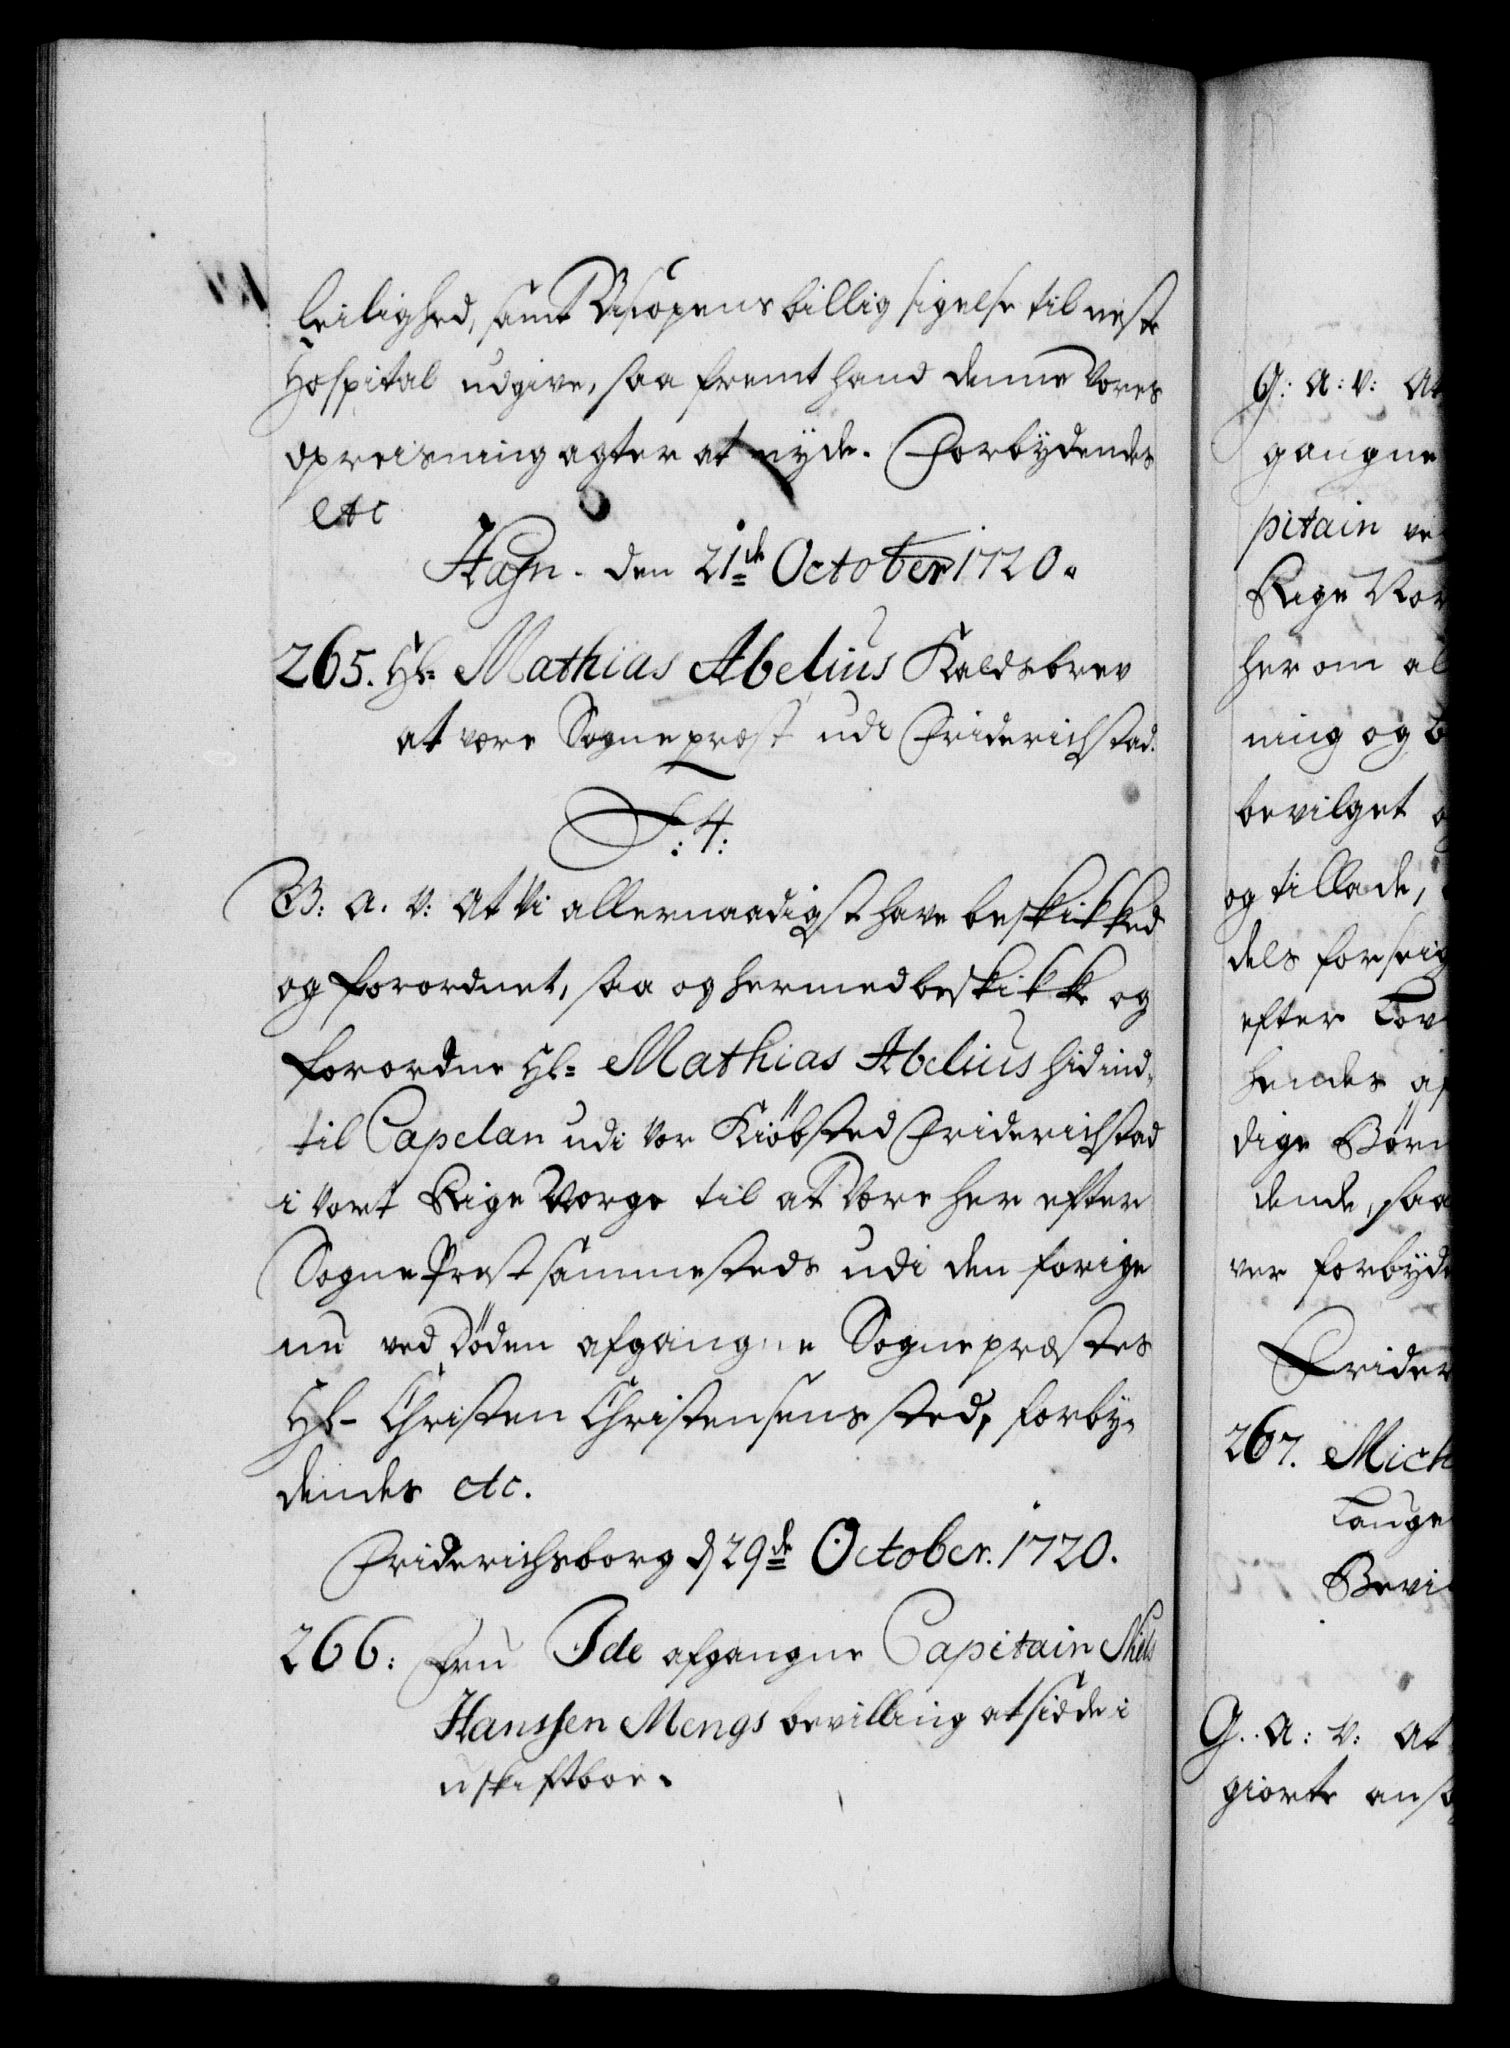 leilighed, samt Biscopens billig sigelse til neste
Hospital udgive, saa fremt hand denne Vores
opreisning agter at nyde. Forbydendes
etc
Hafn. den 21de October 1720.
265. Hr. Mathias Abelius Kaldsbrev
at være Sogneprest udi Friderichstad.
F:4:
G: A. V: At Vi allernaadigst have beskikked
og forordnet, saa og hermed beskikke og
forordne Hr. Mathias Abelius hid ind-
til Capelan udi Vor Kiöbsted Friderichstad
i Vort Rige Norge til at Være her efter
Sogne Prest sammesteds udi den forige
nu ved Döden afgangne Sogneprestes
Hr. Christen Christensens sted, forby-
dendes etc.
Friderichsborg d 29de October. 1720.
266: Fru Ide afgangne Capitain Niels
Hanssen Mengs bevilling at sidde i
uskiftboe.
G: A: V: At
gangne
pitain ve
Rige Nor
her om al
ning og b
bevilget o
og tillade,
dels forseig
efter Lov
hendes af
dige Börn
dende, saa
ver forbyde
Frider
267. Mich
Lauge
Bevi
G. A: V: At
giorte ansö